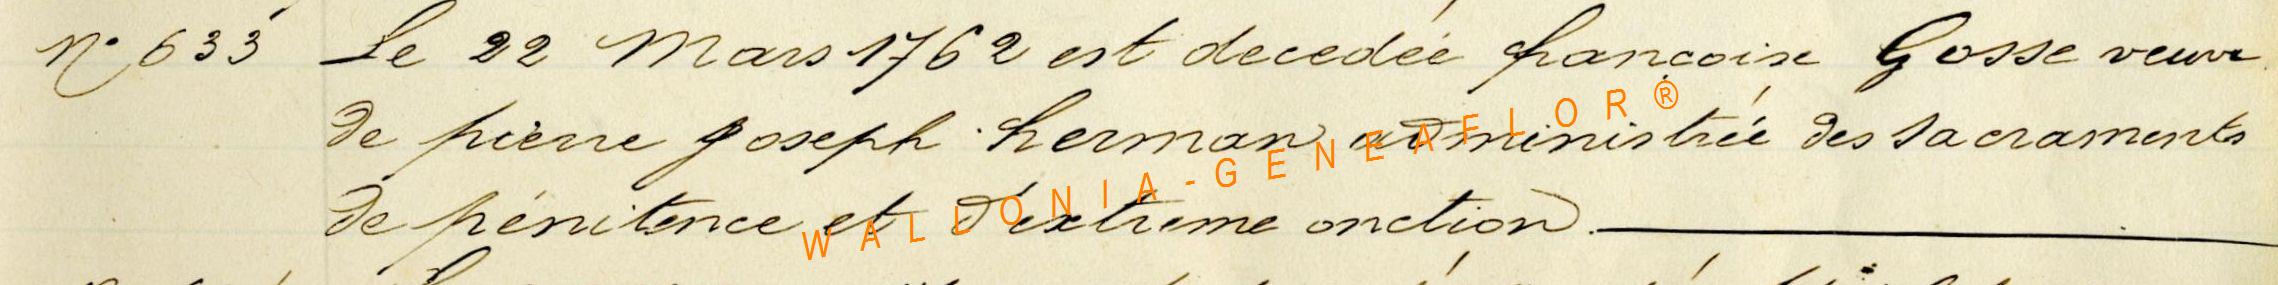 N° 633 Le 22 Mars 1762 est decedée françoise Gosse veuve
de pierre joseph herman administrée des sacraments
de pénitence et d'extreme onction.
WALLONIA-GENEAFLOR®